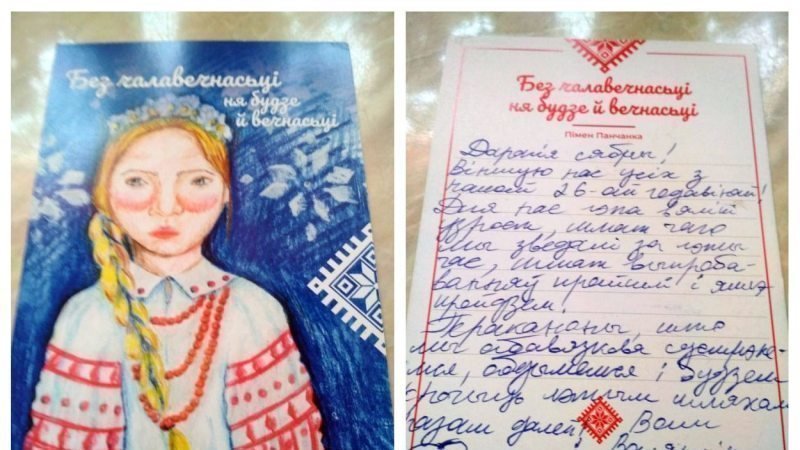 Без чалавечнасьці
ня будзе
й вечнасьці
Без чалавечнасьці
ня будзе й вечнасьці
Пімен Панчанка
Дарагія сябры!
Віншую нас усіх з
нашай 26-ай гадавінай!
Для нас гэта вялікі
ўзрост, шмат чаго
мы зведалі за гэты
час, шмат выпроба-
ванняў прайшлі і яшчэ
пройдзем.
Перакананы, што
мы абавязкова сустрэне-
мся, абдымемся і будзем
крочыць гэтым шляхам
разам далей! Ваш